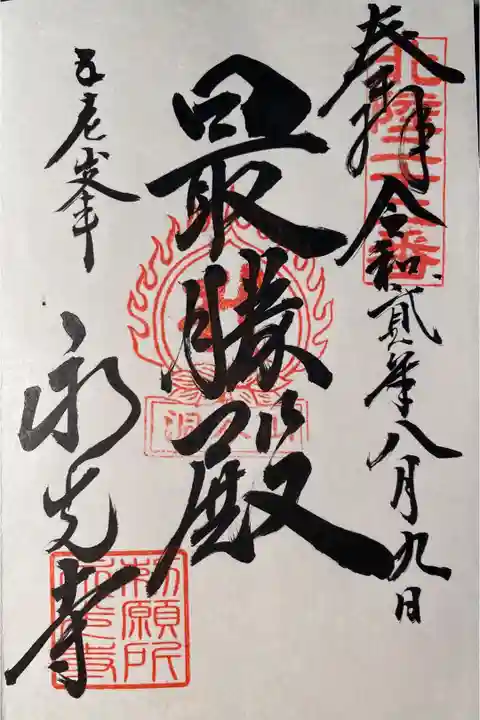 奉拝 令和貳年八月九日
北陸二十三番
最勝殿
洞谷山
五老峯
永光寺
勅願所
永光寺